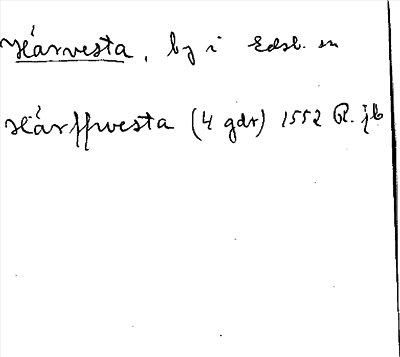 Hárvesta, by i Edsb. sn
Hárffwesta (4 gdr) 1552 R. jb